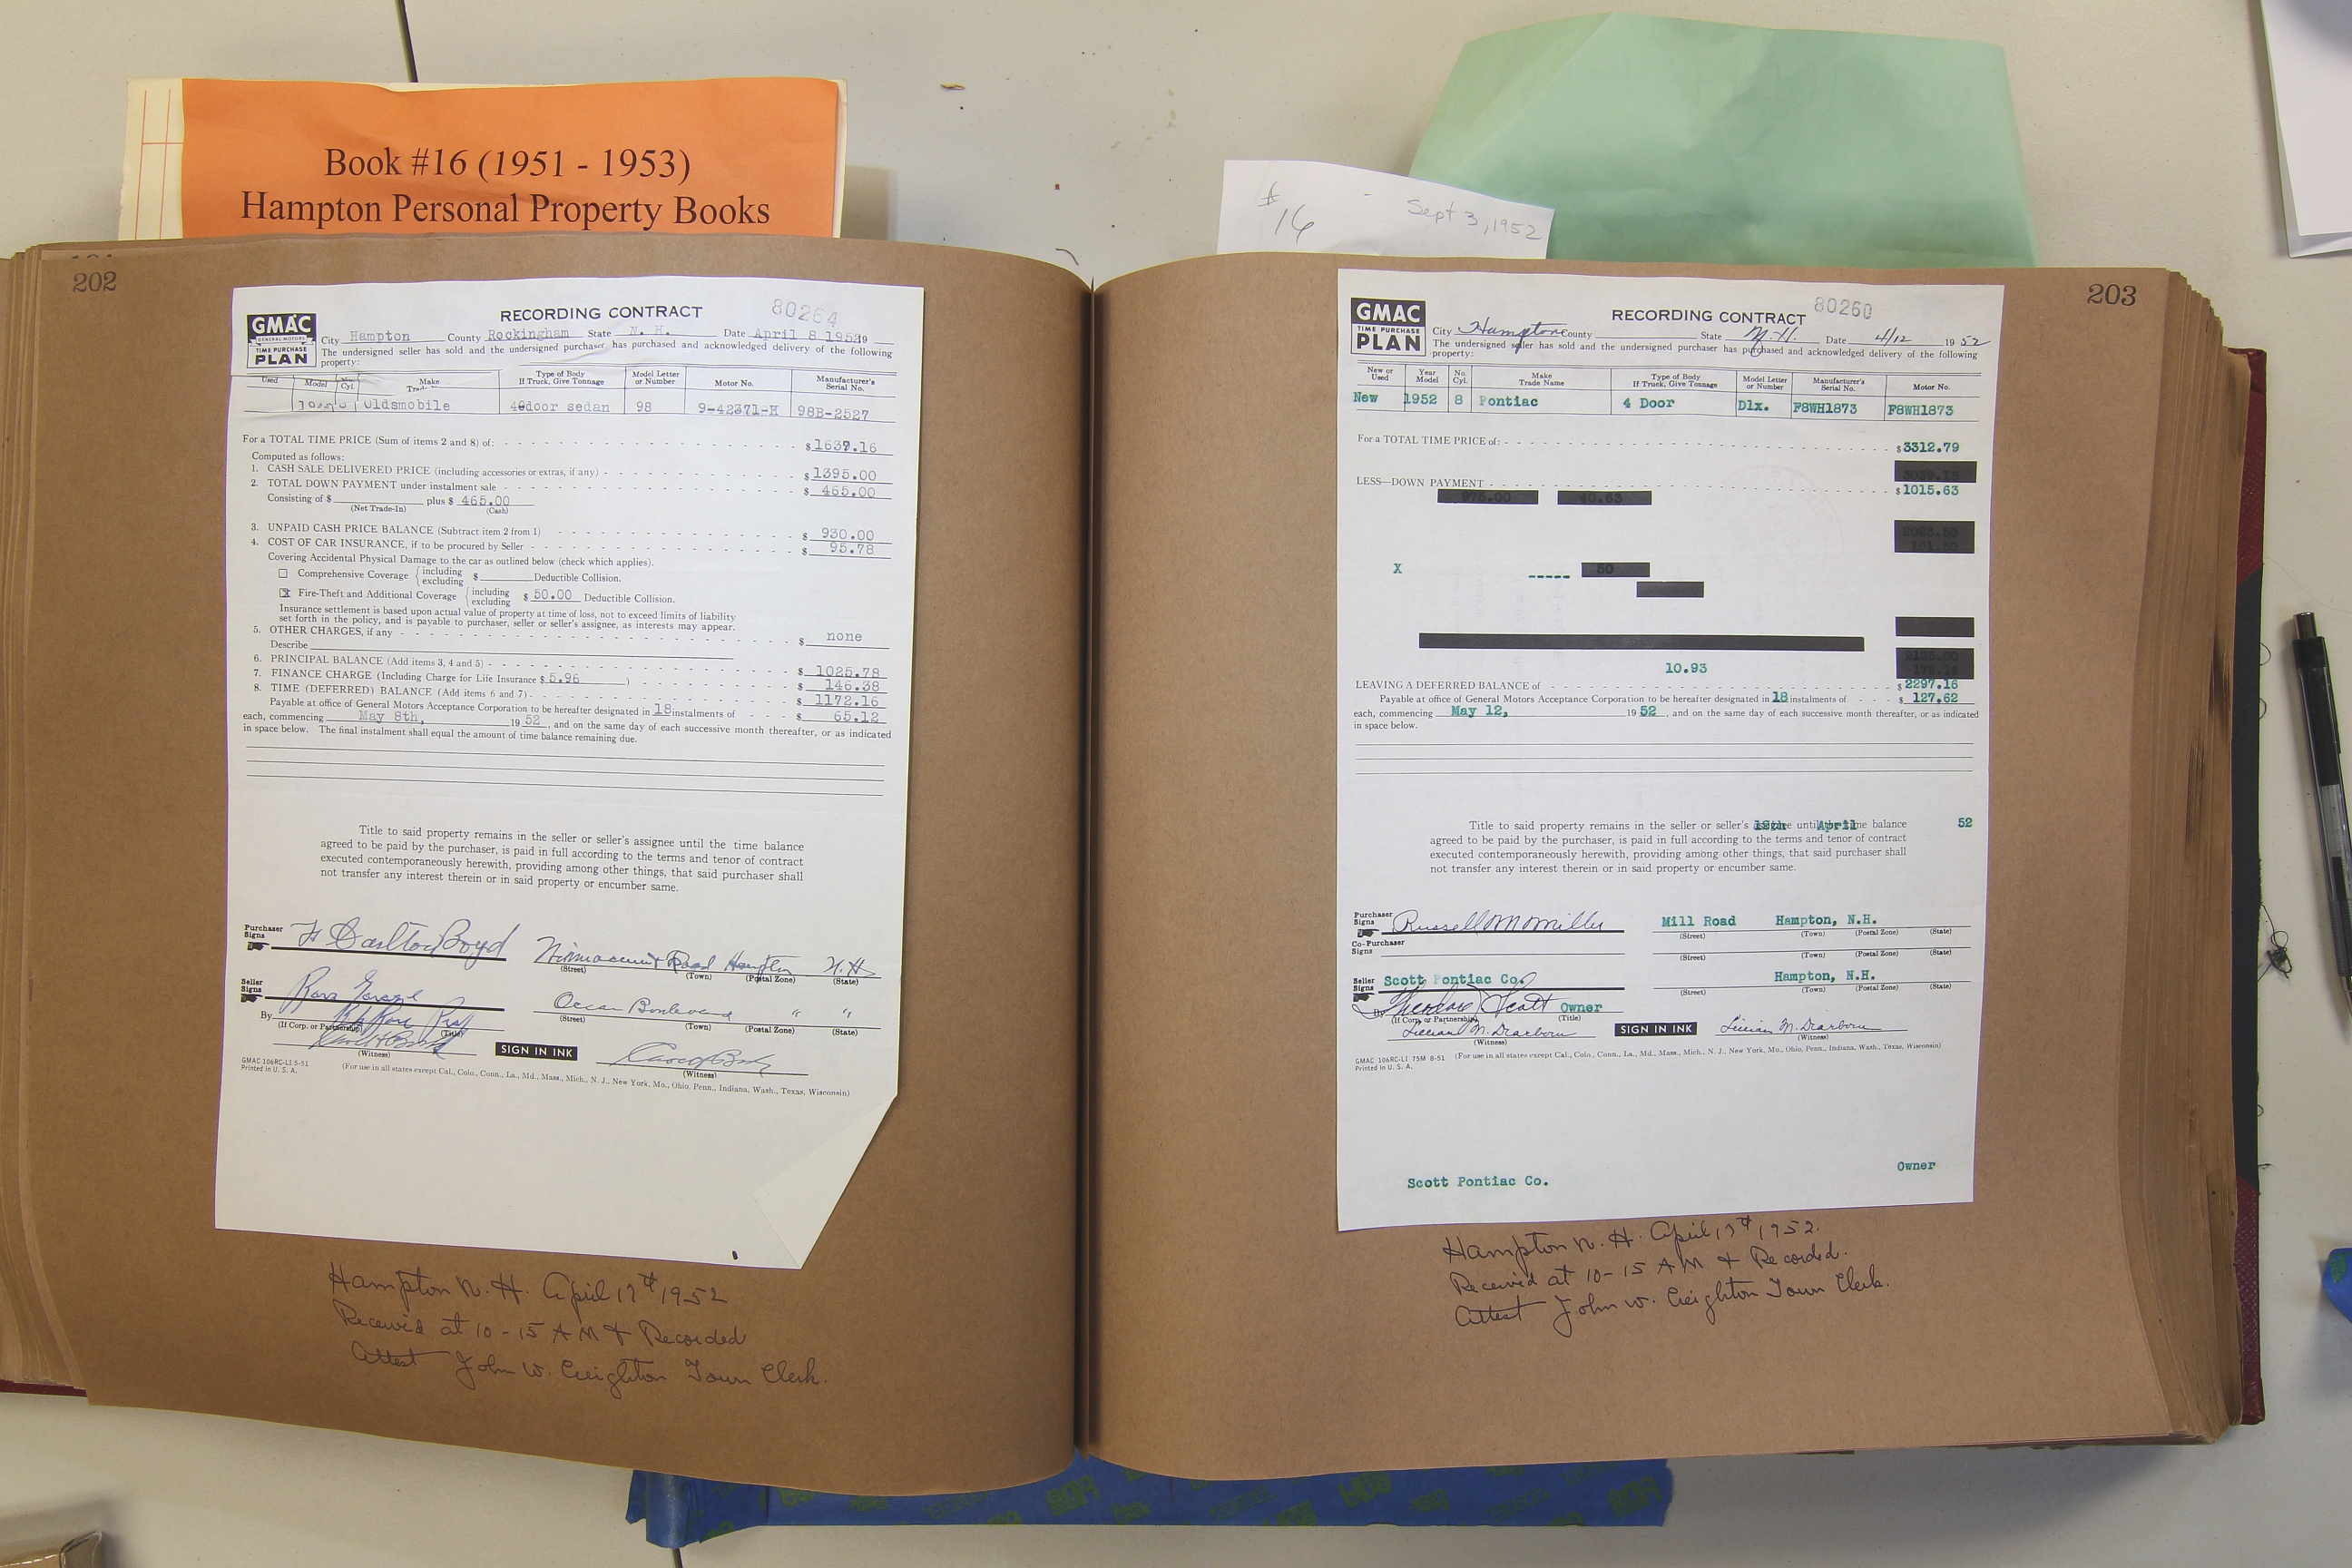 Book #16 (1951 - 1953)
Hampton Personal Property Books
# 16 - Sept 3, 1952
202
GMAC
GENERAL MOTORS
TIME PURCHASE
PLAN
RECORDING CONTRACT
80264
City Hampton County Rockingham State N. H. Date April 8 195
The undersigned seller has sold and the undersigned purchaser has purchased and acknowledged delivery of the following
property:
Used Model Cyl. Make Type of Body If Truck, Give Tonnage Model Letter or Number Motor No. Manufacturer's Serial No.
Oldsmobile door sedan 98 9-42371-H 98B-2527
For a TOTAL TIME PRICE (Sum of items 2 and 8) of: $1637.16
Computed as follows:
1. CASH SALE DELIVERED PRICE (including accessories or extras, if any) $1395.00
2. TOTAL DOWN PAYMENT under instalment sale $465.00
Consisting of $ plus $ 465.00
(Net Trade-In) (Cash)
3. UNPAID CASH PRICE BALANCE (Subtract item 2 from 1) $ 930.00
4. COST OF CAR INSURANCE, if to be procured by Seller $ 95.78
Covering Accidental Physical Damage to the car as outlined below (check which applies).
Comprehensive Coverage { including excluding $ Deductible Collision.
X Fire-Theft and Additional Coverage { including excluding $ 50.00 Deductible Collision.
Insurance settlement is based upon actual value of property at time of loss, not to exceed limits of liability
set forth in the policy, and is payable to purchaser, seller or seller's assignee, as interests may appear.
5. OTHER CHARGES, if any $ none
Describe
6. PRINCIPAL BALANCE (Add items 3, 4 and 5) $ 1025.78
7. FINANCE CHARGE (Including Charge for Life Insurance $ 5.96 ) $ 146.38
8. TIME (DEFERRED) BALANCE (Add items 6 and 7) $ 1172.16
Payable at office of General Motors Acceptance Corporation to be hereafter designated in 18 instalments of $ 65.12
each, commencing May 8th, 19 52, and on the same day of each successive month thereafter, or as indicated
in space below. The final instalment shall equal the amount of time balance remaining due.
Title to said property remains in the seller or seller's assignee until the time balance
agreed to be paid by the purchaser, is paid in full according to the terms and tenor of contract
executed contemporaneously herewith, providing among other things, that said purchaser shall
not transfer any interest therein or in said property or encumber same.
Purchaser Signs Carlton Boyd Road Hampton N.H.
(Street) (Town) (Postal Zone) (State)
Seller Signs Ross Garage Ocean Boulevard " "
(Street) (Town) (Postal Zone) (State)
By
(If Corp. or Partnership) (Title)
(Witness) SIGN IN INK (Witness)
GMAC 106RC-LI 5-51
Printed in U. S. A.
(For use in all states except Cal., Colo., Conn., La., Md., Mass., Mich., N. J., New York, Mo., Ohio, Penn., Indiana, Wash., Texas, Wisconsin)
Hampton N. H. April 17th 1952
Received at 10-15 AM & Recorded
Attest John W. Creighton Town Clerk.
203
GMAC
TIME PURCHASE
PLAN
RECORDING CONTRACT
80260
City Hampton County State N.H. Date 4/12 19 52
The undersigned seller has sold and the undersigned purchaser has purchased and acknowledged delivery of the following
property:
New or Used Year Model No. Cyl. Make Trade Name Type of Body If Truck, Give Tonnage Model Letter or Number Manufacturer's Serial No. Motor No.
New 1952 8 Pontiac 4 Door Dlx. F8WH1873 F8WH1873
For a TOTAL TIME PRICE of: $3312.79
LESS—DOWN PAYMENT $1015.63
X ----- 50
10.93
LEAVING A DEFERRED BALANCE of $2297.16
Payable at office of General Motors Acceptance Corporation to be hereafter designated in 18 instalments of $ 127.62
each, commencing May 12, 19 52, and on the same day of each successive month thereafter, or as indicated
in space below.
Title to said property remains in the seller or seller's until April balance 52
agreed to be paid by the purchaser, is paid in full according to the terms and tenor of contract
executed contemporaneously herewith, providing among other things, that said purchaser shall
not transfer any interest therein or in said property or encumber same.
Purchaser Signs Russell M Miller Mill Road Hampton, N.H.
(Street) (Town) (Postal Zone) (State)
Co-Purchaser Signs
(Street) (Town) (Postal Zone) (State)
Seller Signs Scott Pontiac Co. Hampton, N.H.
(Street) (Town) (Postal Zone) (State)
By Theodore Scott Owner
(If Corp. or Partnership) (Title)
Lillian M. Dearborn SIGN IN INK Lillian M. Dearborn
(Witness) (Witness)
GMAC 106RC-LI 75M 8-51
Printed in U. S. A.
(For use in all states except Cal., Colo., Conn., La., Md., Mass., Mich., N. J., New York, Mo., Ohio, Penn., Indiana, Wash., Texas, Wisconsin)
Owner
Scott Pontiac Co.
Hampton N. H. April 17th 1952.
Received at 10-15 AM & Recorded.
Attest John W. Creighton Town Clerk.